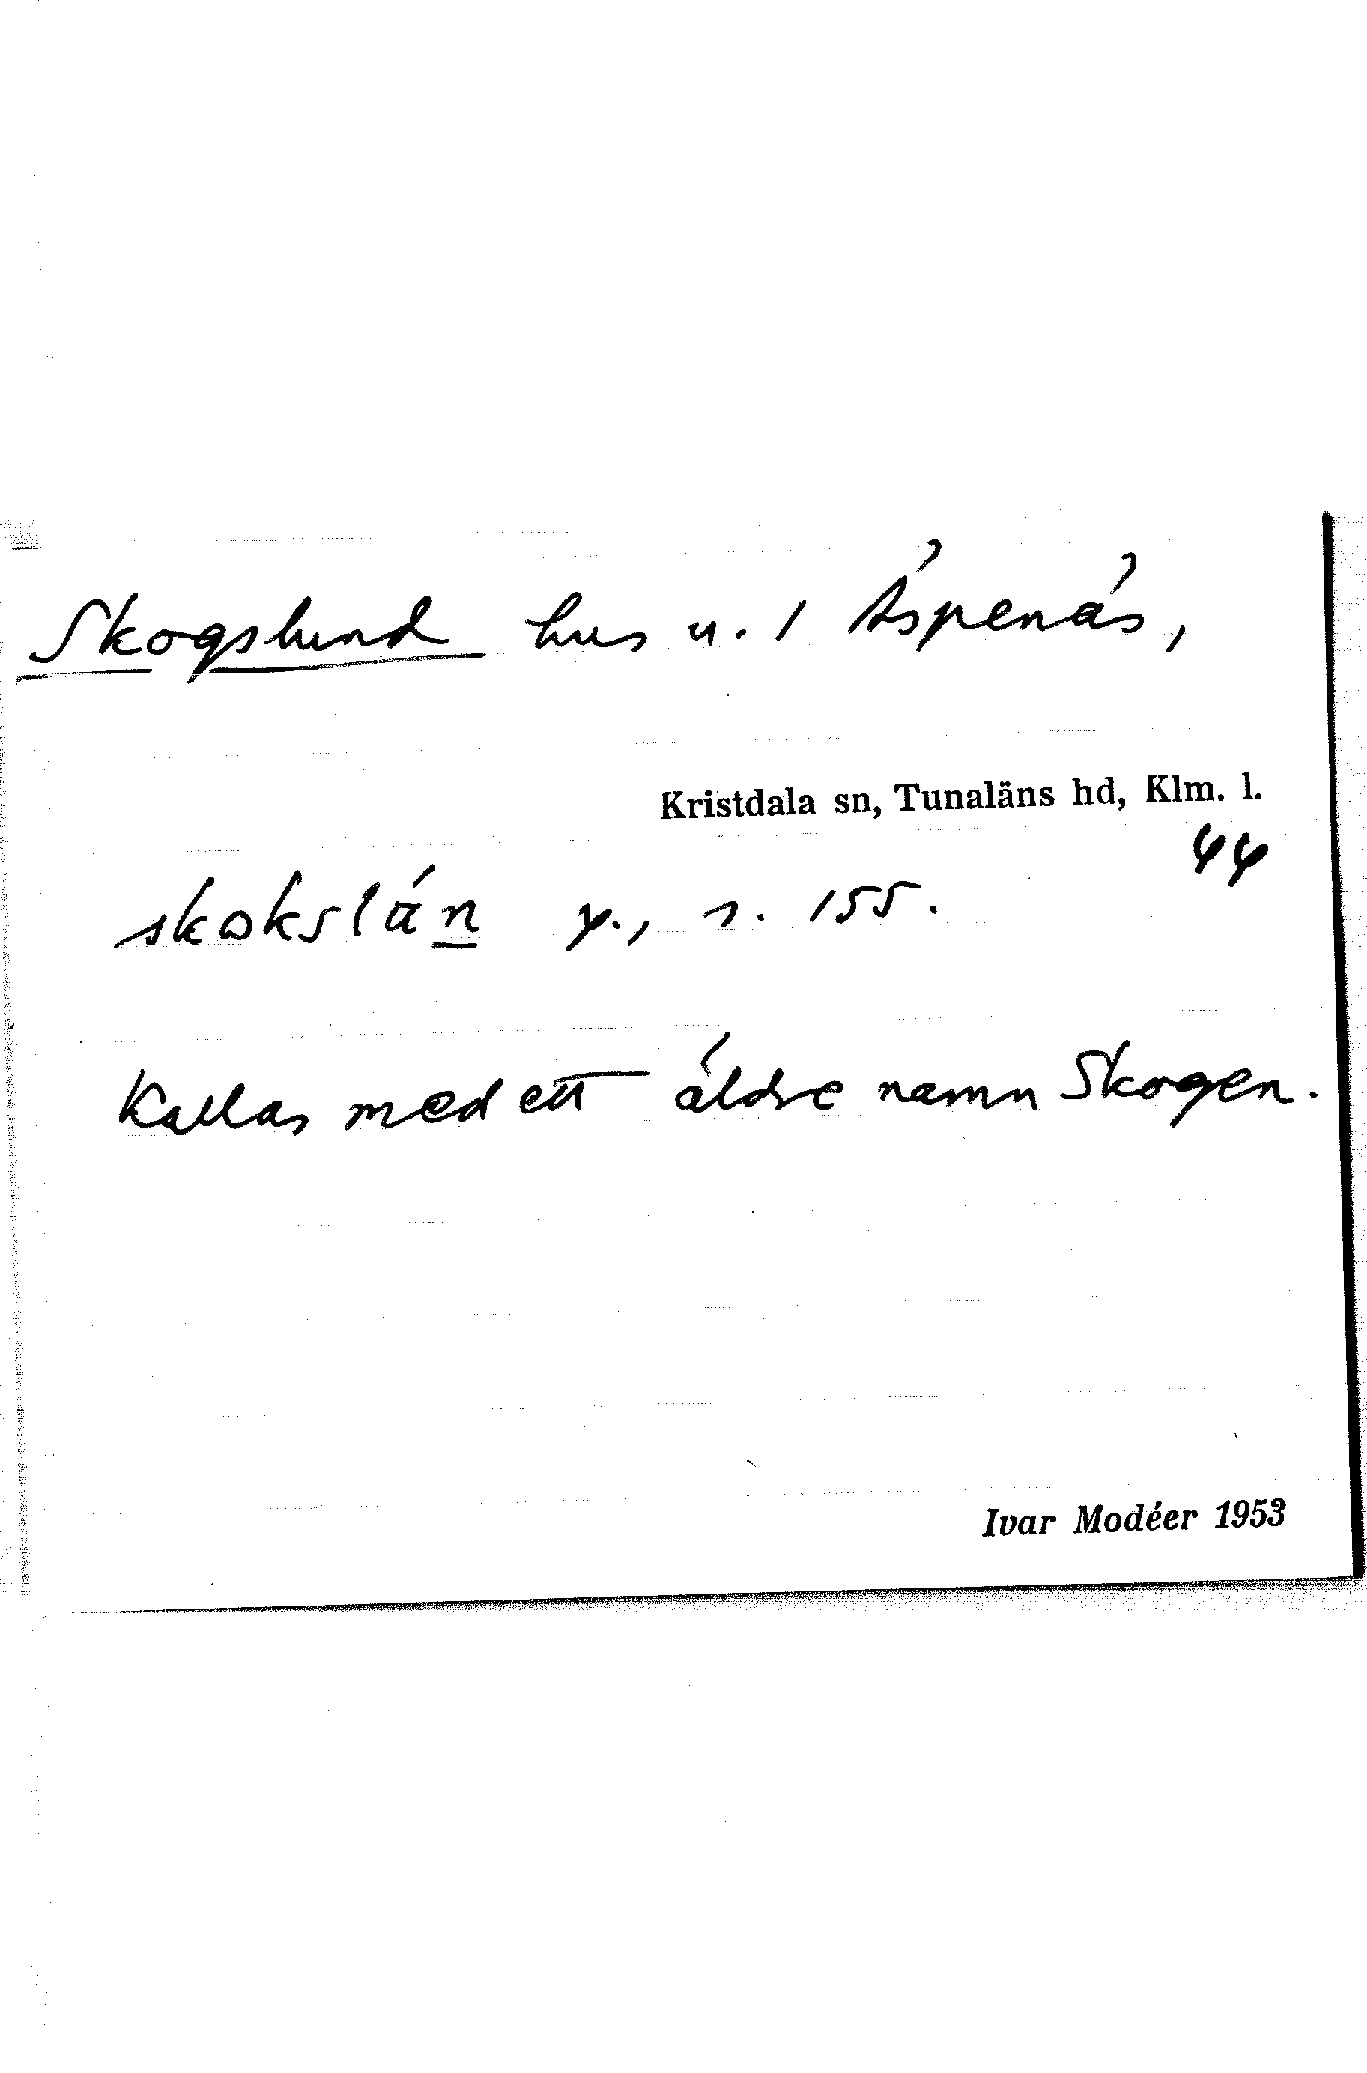 Skogslund hus u. 1 Äspenäs,
Kristdala sn, Tunaläns hd, Klm. l.
44
skokslán y., s. 155.
Kallas med ett äldre namn Skogen.
Ivar Modéer 1953